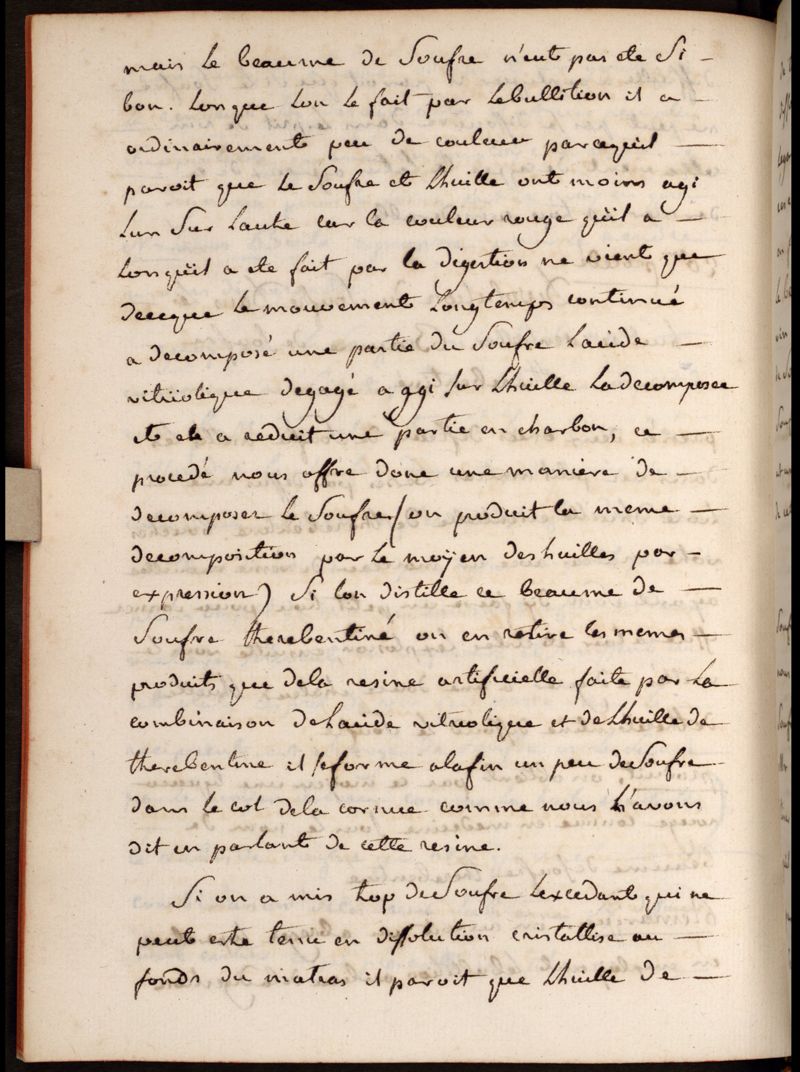 mais le beaume de Soufre n'eut pas ete Si
bon. Lorsque lon le fait par Lebullition il a
ordinairement peu de couleur parcequil
paroit que le Soufre et Lhuille ont moins agi
Lun Sur Lautre car la couleur rouge qüil a
Lorsqüil a ete fait par la digestion ne vient que
deceque le mouvement Longtemps continué
a decomposé une partie du Soufre Lacide
vitriolique degagé a agi sur Lhuille La decomposee
et ele a reduit une partie en charbon, ce
procedé nous offre donc une maniere de
decomposer le Soufre / on produit la meme
decomposition par le moÿen des huilles par
expression) Si lon distille ce beaume de
Soufre therebentiné on en retire les memes
produits que dela resine artificielle faite par La
combinaison de Lacide vitriolique et de Lhuille de
therebentine il se forme alafin un peu de Soufre
dans le col dela cornue comme nous L'avons
dit en parlant de cette resine.
Si on a mis trop de Soufre Lexcedant qui ne
peut estre tenu en dissolution cristallise au
fonds du matras il paroit que Lhuille de